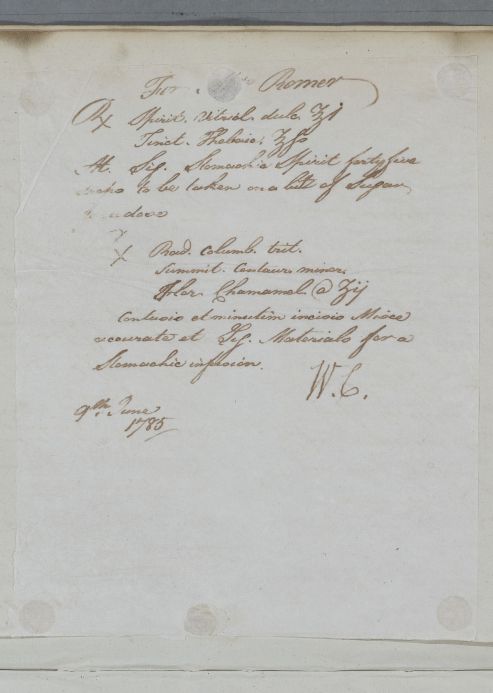 For Romer
Rx Spirit. Vitriol. dulc. ʒj
Tinct. Thebaic. ʒſs
M. Sig. Stomachic Spirit forty five
to be taken on a bit of Sugar
dose
Rad. Columb. trit.
Summit. Centaur. minor.
Flor. Chamomel. @ ʒij
Contusio et minutim inciсio Misce
accurate et Sig. Materials for a
Stomachic infusion.
W. C.
9th. June
1785